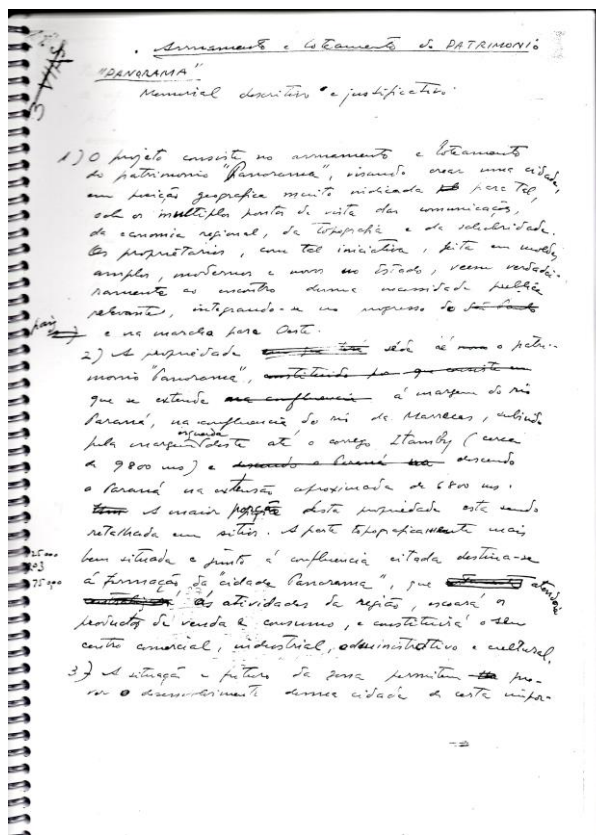 3 VIAS
Arruamento e loteamento do PATRIMONIO
"PANORAMA"
Memorial descritivo e justificativo
1) O projeto consiste no arruamento e loteamento
do patrimonio "Panorama", visando crear uma cidade,
em posição geografica muito indicada para tal,
sob os multiplos pontos de vista das comunicações,
da economia regional, da topografia e da salubridade.
Os proprietarios, com tal iniciativa, feita em moldes
amplos, modernos e novos no Estado, veem verdadei-
ramente ao encontro duma necessidade publica
relevante, integrando-se no progresso do São Paulo
pais e na marcha para Oeste.
2) A propriedade séde é o patri-
monio "Panorama", constituido por que consiste em
que se extende na confluencia á margem do rio
Paraná, na confluencia do rio de Marrecas, subindo
pela margem esquerda deste até o corrego Itamby (cerca
de 9800 ms) e descendo o Paraná na descendo
o Paraná na extensão aproximada de 6800 ms.
A maior porção desta propriedade esta sendo
retalhada em sitios. A parte topograficamente mais
bem situada e junto á confluencia citada destina-se
á formação da "cidade Panorama", que atenderá
ás atividades da região, escoará os
productos de venda e consumo, e constituirá o seu
centro comercial, industrial, administrativo e cultural.
3) A situação e futuro da zona permitem pre-
ver o desenvolvimento duma cidade de certa impor-